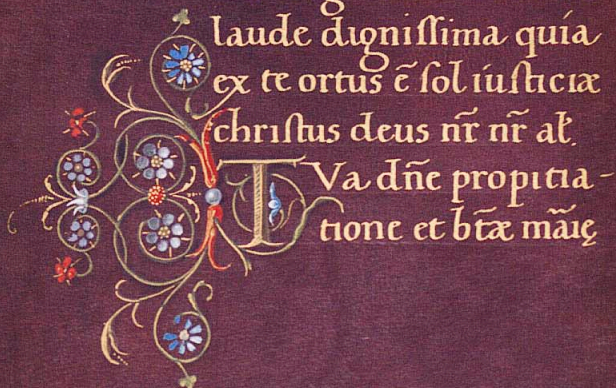 laude digniſſima quia
ex te ortus ē ſol iuſticiæ
chriſtus deus nr̄ nr̄ al̄.
TVa dn̄e propitia-
tione et bt̄æ māię